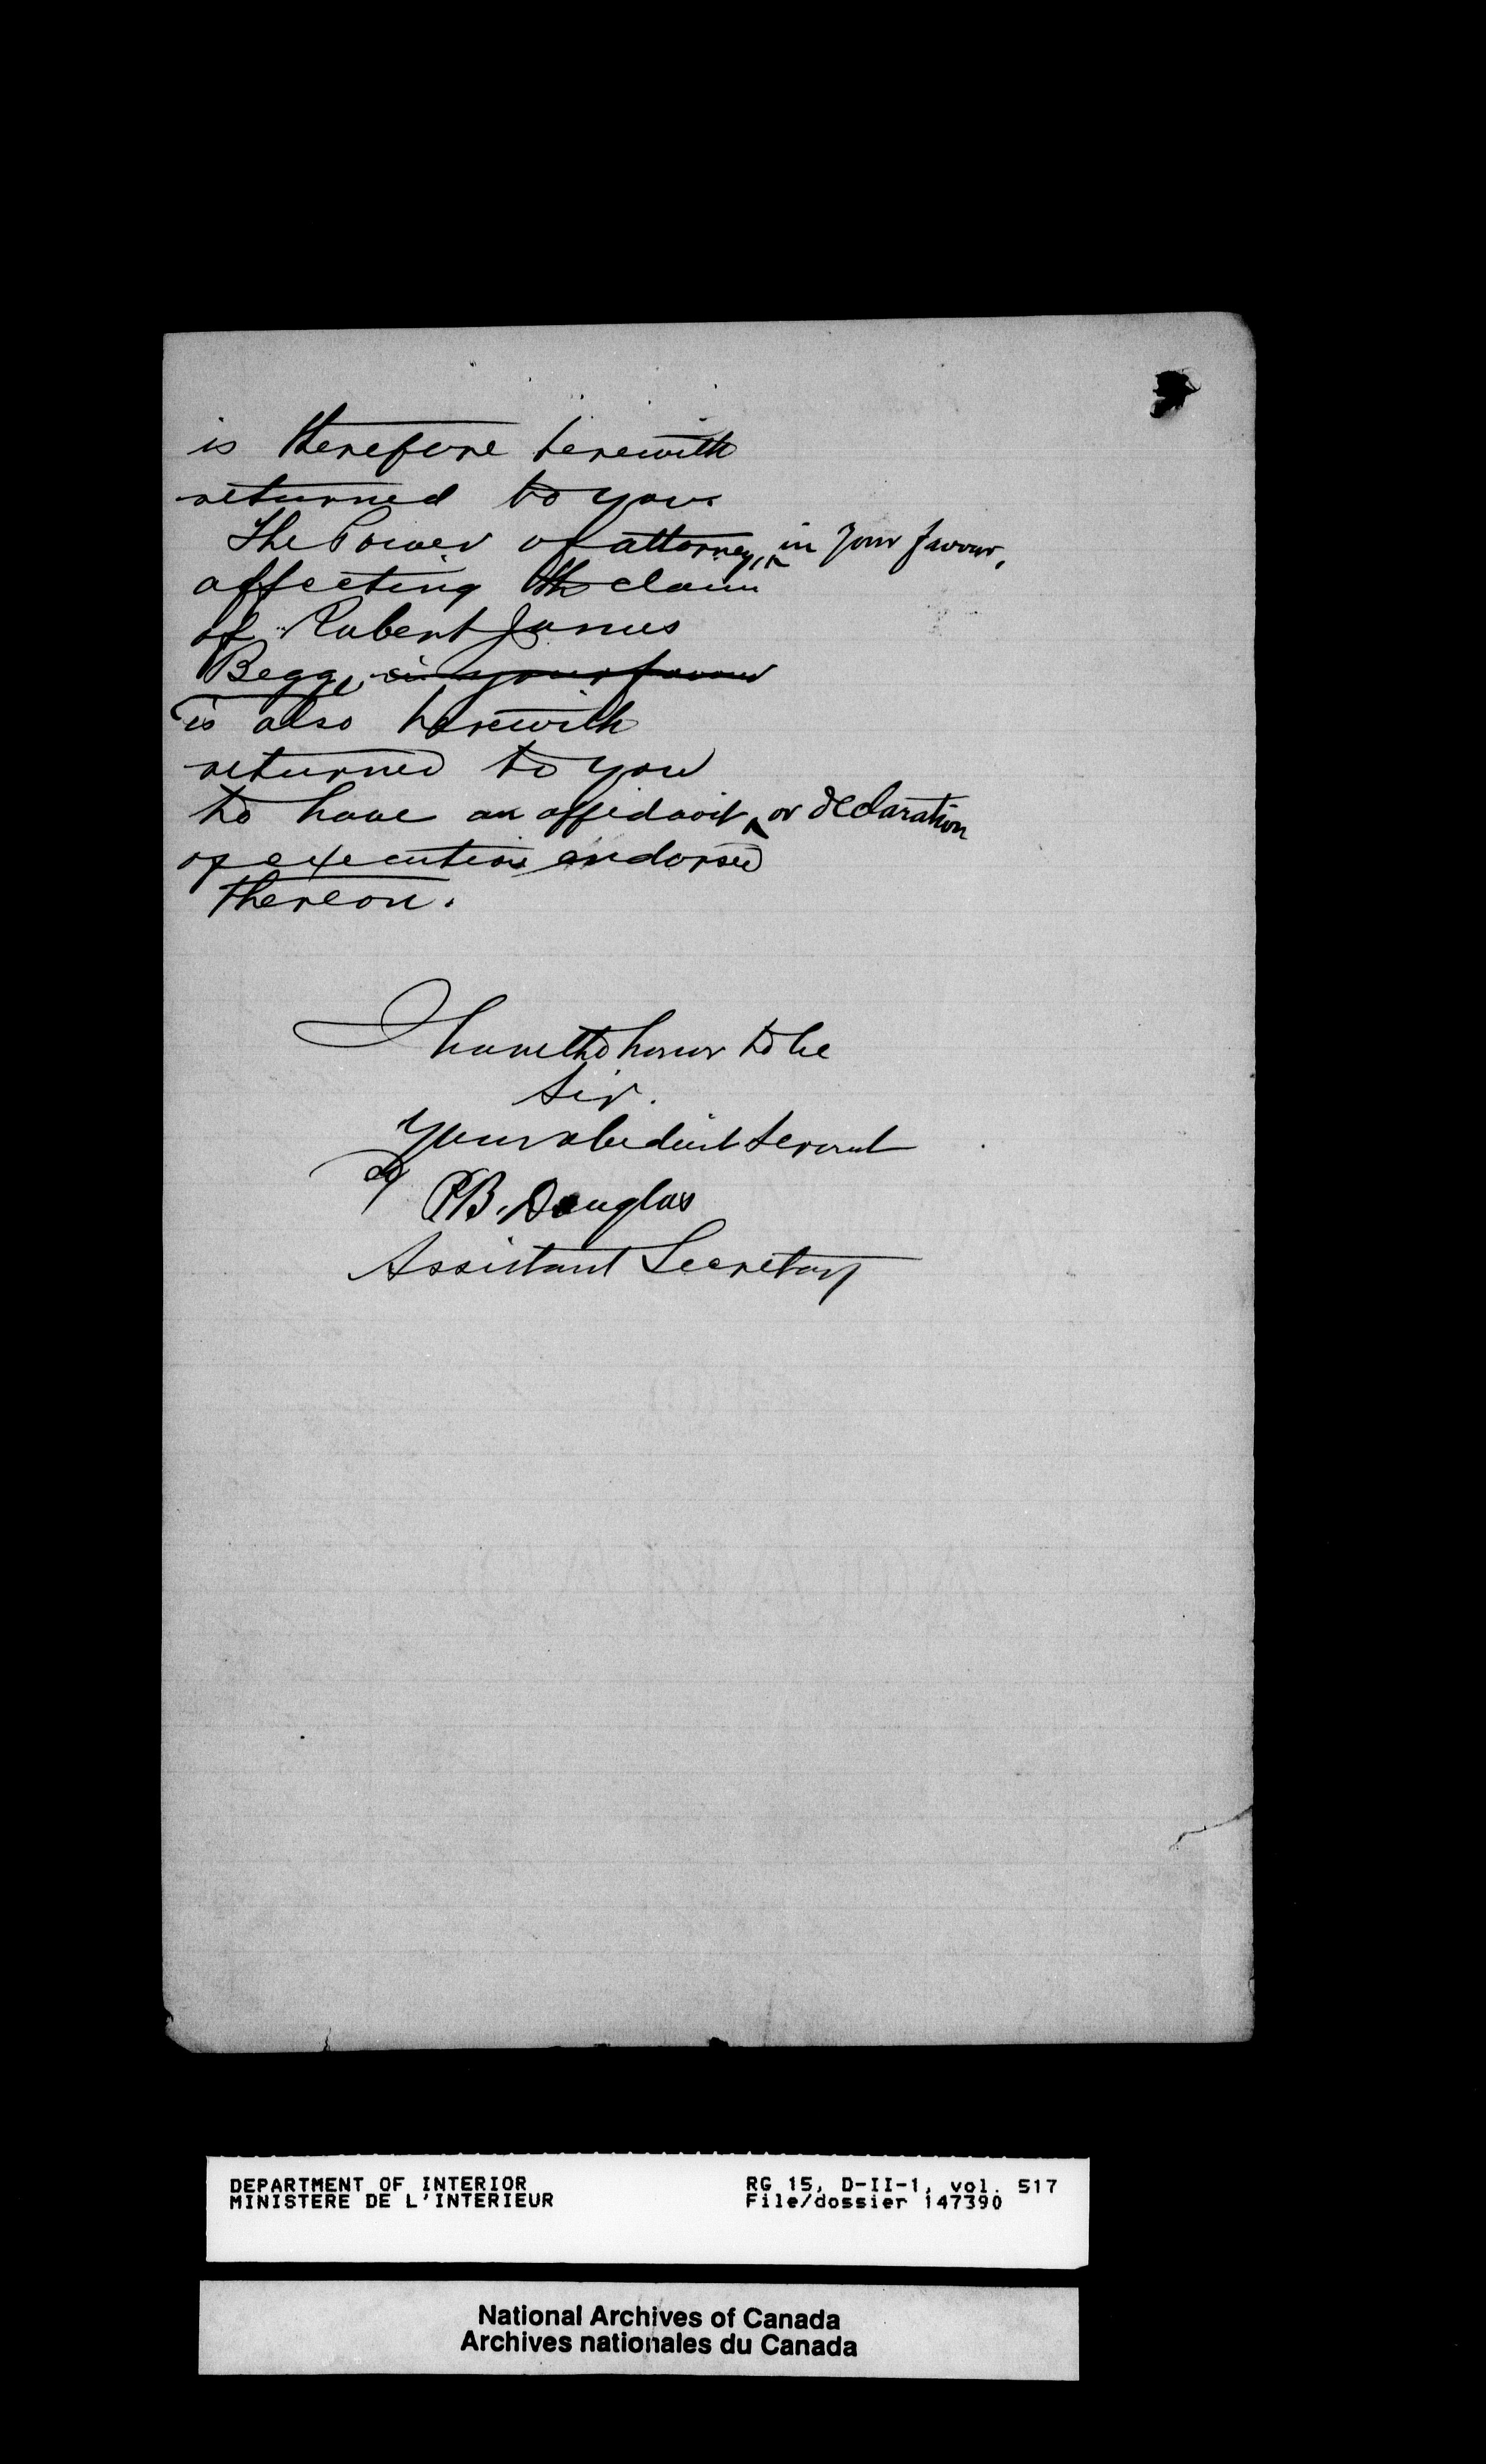 is therefore herewith
returned to you.
The Power of attorney, ^ in your favour,
affecting the claim
of Robert James
Begg, in your favour
is also herewith
returned to you
to have an affidavit ^ or declaration
of execution endorsed
thereon.
I have the honor to be
Sir.
Your obedient Servant
P.B. Douglas
Assistant Secretary
DEPARTMENT OF INTERIOR RG 15, D-II-1, vol. 517
MINISTERE DE L'INTERIEUR File/dossier 147390
National Archives of Canada
Archives nationales du Canada